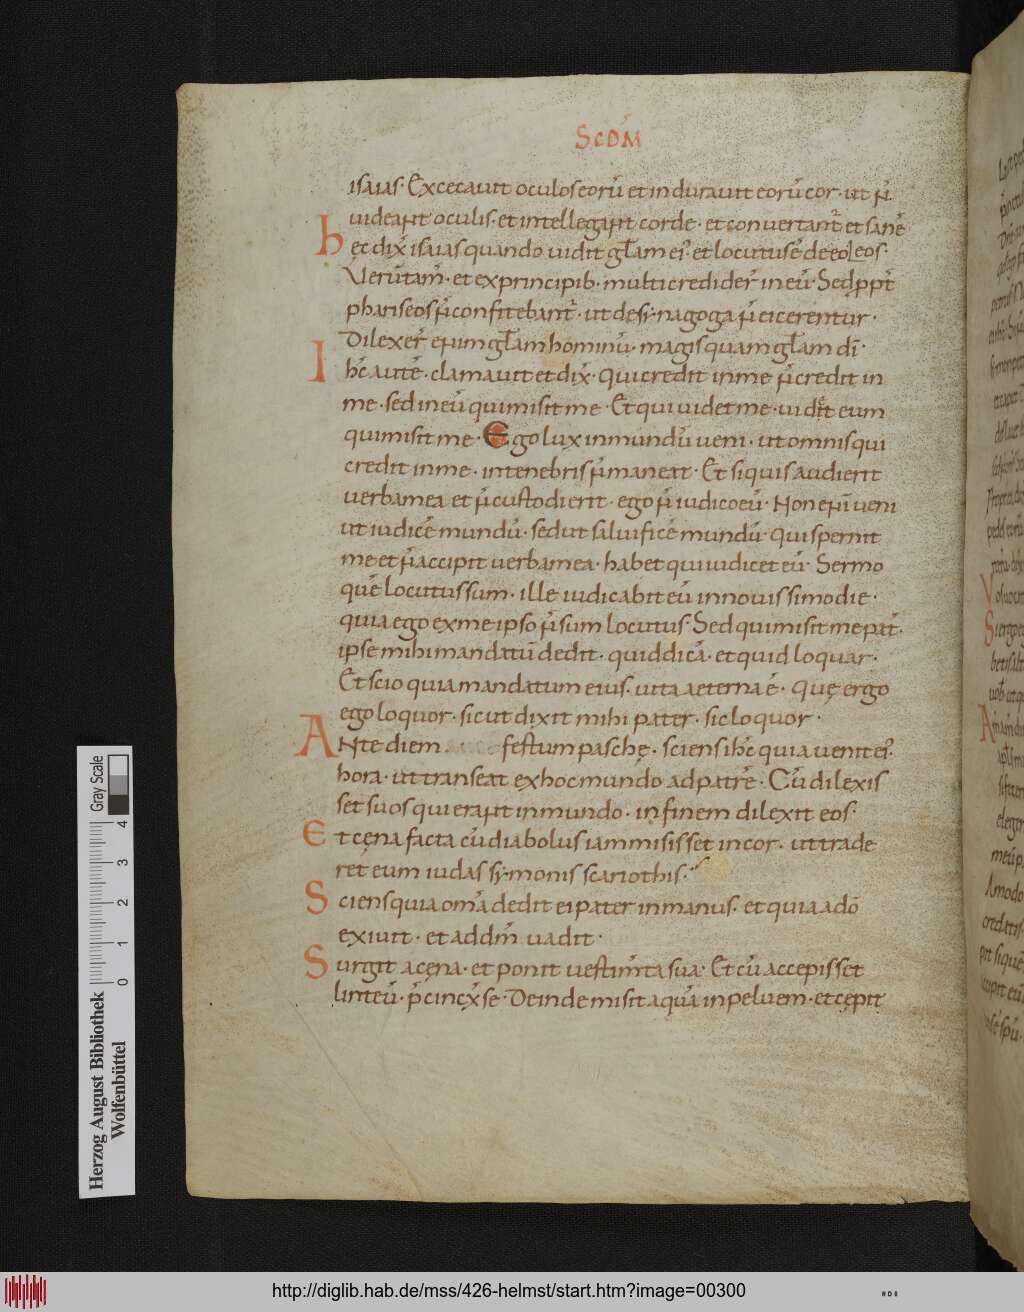 SCDM
isaias· Excecauit oculos eorū et indurauit eorū cor· ut n̄
uideant oculis· et intellegant corde· et conuertant̄ et sanē
hęc dix̄ isaias quando uidit gl̄am ei᾿· et locutus ē de eo
eos·
Verūtam̄· et ex principib· multi crediderˉ in eū· Sed ppt̄
phariseos n̄ confitebant̄· ut de synagoga n̄ eicerentur·
Dilexer̄ enim gl̄am hominū· magis quam gl̄am dī·
Ih̄c autē· clamauit et dix̄· Qui credit in me n̄ credit in
me· sed in eū qui misit me· Et qui uidet me· uidet eum
qui misit me· Ego lux in mundū ueni· ut omnis qui
credit in me· in tenebris n̄ maneat· Et si quis audierit
uerba mea et n̄ custodierit· ego n̄ iudico eū· Non enī ueni
ut iudicē mundū· sed ut saluificē mundū· Qui spernit
me et n̄ accipit uerba mea· habet qui iudicet eū· Sermo
quē locutus sum· ille iudicabit eū in nouissimo die·
quia ego ex me ipso n̄ sum locutus· Sed qui misit me pat̄·
ipse mihi mandatū dedit· quid dicā· et quid loquar·
Et scio quia mandatum eius· uita aeterna ē· Quę ergo
ego loquor· sicut dixit mihi pater· sic loquor·
ANte diem festum paschę· sciens ih̄c quia uenit ei᾿·
hora· ut transeat ex hoc mundo ad patrē· Cū dilexis
set suos qui erant in mundo· in finem dilexit eos·
Et cęna facta cū diabolus iam misisset in cor· ut trade
ret eum iudas symonis scariothis·
Sciens quia om̄a dedit ei pater in manus· et quia a dō
exiuit· et ad dm̄ uadit·
Surgit a cęna· et ponit uestim̄ta sua· Et cū accepisset
linteū· p̄cincx̄ se· Deinde misit aquā in peluem· et cępit
Herzog August Bibliothek
Wolfenbüttel
0 1 2 3 4
Gray Scale
http://diglib.hab.de/mss/426-helmst/start.htm?image=00300